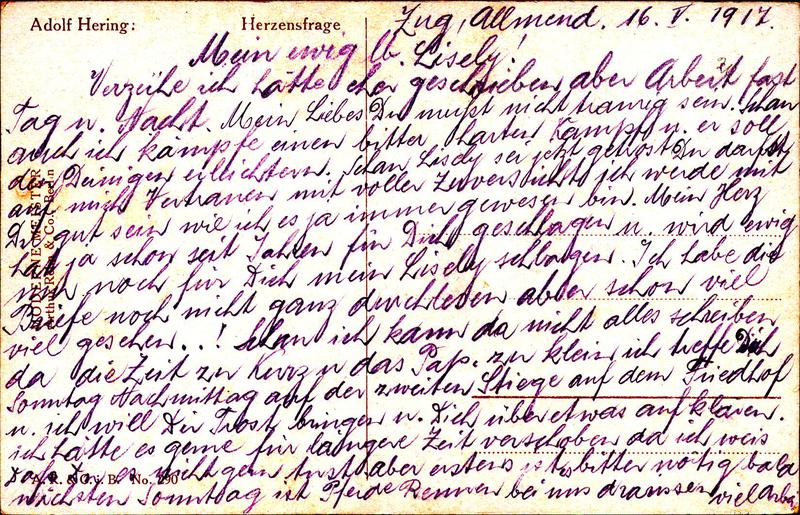 Adolf Hering: Herzensfrage
Zug, Allmend. 16. V. 1917.
Mein ewig lb. Lisely!
Verzeihe ich hätte eher geschrieben aber Arbeit fast
Tag u. Nacht. Mein Liebes Du mußt nicht traurig sein. Schau
auch ich kämpfe einen bitter harten Kampf u. er soll
den Deinigen erleichtern. Schau Lisely sei jetzt getrost Du darfst
auf mich Vertrauen mit voller Zuversicht ich werde mit
Dir gut sein wie ich es ja immer gewesen bin. Mein Herz
hat ja schon seit Jahren für Dich geschlagen u. wird ewig
nur noch für Dich mein Lisely schlagen. Ich habe die
Briefe noch nicht ganz durchlesen aber schon viel
viel gesehen..! Schau ich kann da nicht alles schreiben
da die Zeit zu kurz u das Pap. zu klein ich treffe Dich
Sonntag Nachmittag auf der zweiten Stiege auf dem Friedhof
u. ich will Dir Trost bringen u. Dich über etwas aufklären.
ich hätte es gerne für längere Zeit verschoben da ich weis
daß Du es nicht gern tust aber erstens ist es bitter nötig
nächsten Sonntag ist Pferde Rennen bei uns draussen viel
MODERNE MEISTER
Arthur Rehn & Co., Berlin
A. R. & C. i. B. No. 290